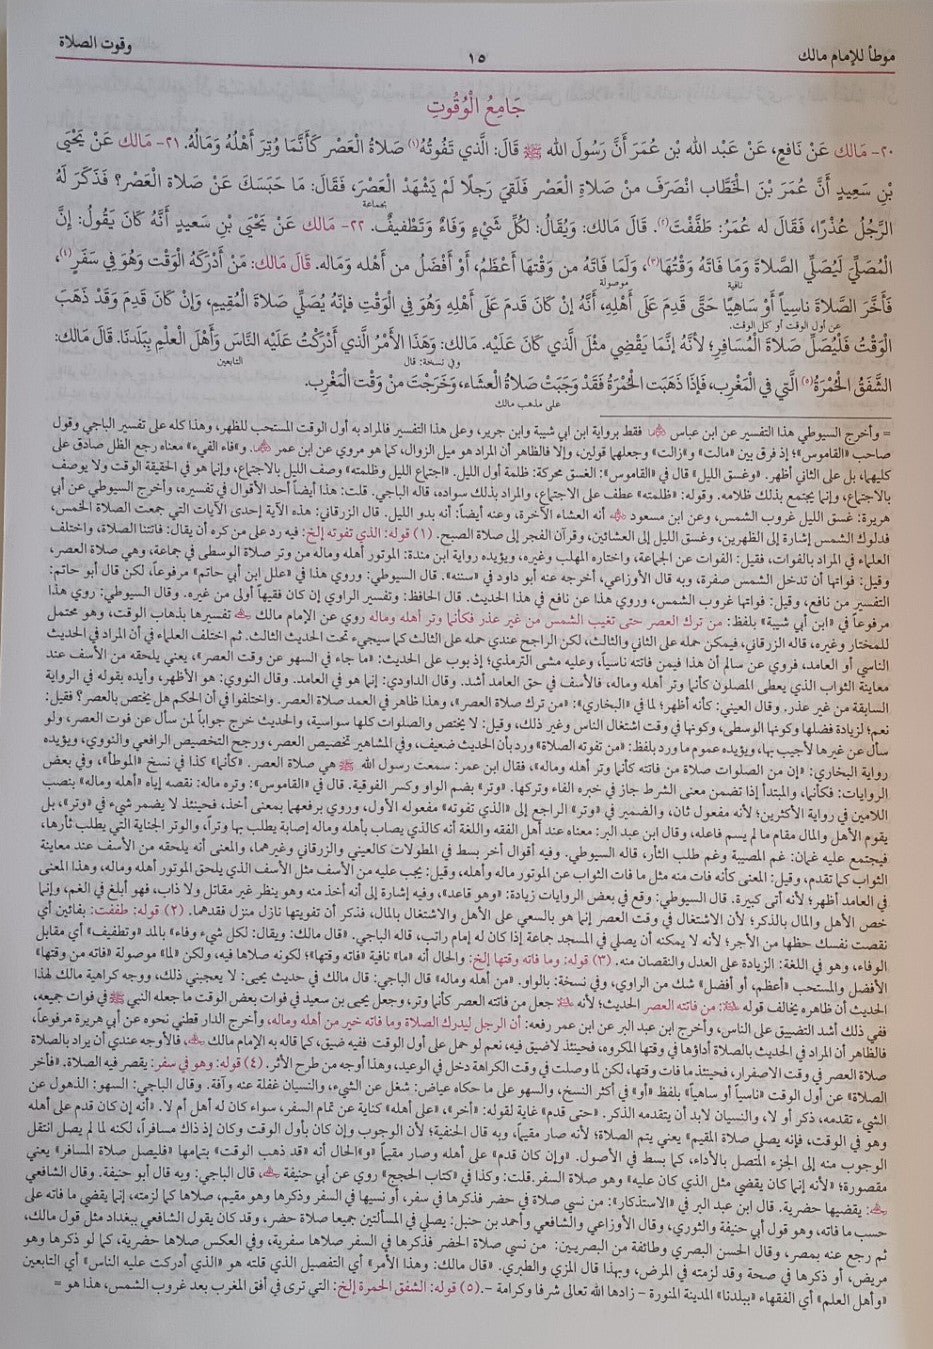 موطأ للإمام مالك ١٥ وقوت الصلاة
جَامِعُ الْوُقُوتِ
٢٠- مَالك عَنْ نَافعٍ، عَنْ عَبْد الله بْن عُمَرَ أَنَّ رَسُولَ الله ﷺ قَالَ: الَّذي تَفُوتُهُ(١) صَلَاةُ الْعَصْر كَأَنَّمَا وُتِرَ أَهْلُهُ وَمَالُهُ. ٢١- مَالك عَنْ يَحْيَى
بْنِ سَعِيدٍ أَنَّ عُمَرَ بْنَ الْخَطَّاب انْصَرَفَ منْ صَلَاةِ الْعَصْر فَلَقِيَ رَجلًا لَمْ يَشْهَد الْعَصْرَ، فَقَالَ: مَا حَبَسَكَ عَنْ صَلَاة الْعَصْر؟ فَذَكَرَ لَهُ
بجماعة
الرَّجُلُ عُذْرًا، فَقَالَ له عُمَرُ: طَفَّفْتَ(٢). قَالَ مَالك: وَيُقَالُ: لكُلِّ شَيْءٍ وَفَاءٌ وَتَطْفيفٌ. ٢٢- مَالك عَنْ يَحْيَى بْنِ سَعيدٍ أَنَّهُ كَانَ يَقُولُ: إِنَّ
الْمُصَلِّيَ لَيُصَلِّي الصَّلاةَ وَمَا فَاتَهُ وَقْتُهَا(٣)، وَلَمَا فَاتَهُ من وَقْتِهَا أَعْظَمُ، أَوْ أَفْضَلُ من أَهْله وَمَاله. قَالَ مَالك: مَنْ أَدْرَكَهُ الْوَقْت وَهُوَ فِي سَفَرٍ(٤)،
نافية موصولة
فَأَخَّرَ الصَّلاةَ نَاسِياً أَوْ سَاهِيًا حَتَّى قَدِمَ عَلَى أَهْلِهِ، أَنَّهُ إنْ كَانَ قَدمَ عَلَى أَهْلِهِ وَهُوَ فِي الْوَقْتِ فإنَّهُ يُصَلِّي صَلَاةَ الْمُقِيمِ، وَإنْ كَانَ قَدِمَ وَقَدْ ذَهَبَ
عن أول الوقت أو كل الوقت.
الْوَقْتُ فَلْيُصَلِّ صَلَاةَ الْمُسَافِرِ؛ لأنَّهُ إنَّمَا يَقْضِي مثْلَ الَّذي كَانَ عَلَيْه. قَالَ مَالك: وَهَذَا الأَمْرُ الَّذي أَدْرَكْتُ عَلَيْه النَّاسَ وَأَهْلَ الْعلْمِ بِبَلَدنَا. قَالَ مَالك:
وفي نسخة: قال التابعين
الشَّفَقُ الْحُمْرَةُ(٥) الَّتي في الْمَغْرب، فَإذَا ذَهَبَت الْحُمْرَةُ فَقَدْ وَجَبَتْ صَلَاةُ الْعشَاء، وَخَرَجْتَ منْ وَقْت الْمَغْرب.
على مذهب مالك
= وأخرج السيوطي هذا التفسير عن ابن عباس فقط برواية ابن ابي شيبة وابن جرير، وعلى هذا التفسير فالمراد به أول الوقت المستحب للظهر، وهذا كله على تفسير الباجي وقول
صاحب «القاموس»؛ إذ فرق بين «مالت» و«زالت» وجعلهما قولين، وإلا فالظاهر أن المراد هو ميل الزوال، كما هو مروي عن ابن عمر. و«فاء الفيء» معناه رجع الظل صادق على
كليهما، بل على الثاني أظهر. «وغسق الليل» قال في «القاموس»: الغسق محركة: ظلمة أول الليل. «اجتماع الليل وظلمته» وصف الليل بالاجتماع، وإنما هو في الحقيقة الوقت ولا يوصف
بالاجتماع، وإنما يجتمع بذلك ظلامه. وقوله: «ظلمته» عطف على الاجتماع، والمراد بذلك سواده، قاله الباجي. قلت: هذا أيضاً أحد الأقوال في تفسيره، وأخرج السيوطي عن أبي
هريرة: غسق الليل غروب الشمس، وعن ابن مسعود أنه العشاء الآخرة، وعنه أيضاً: أنه بدو الليل. قال الزرقاني: هذه الآية إحدى الآيات التي جمعت الصلاة الخمس،
فدلوك الشمس إشارة إلى الظهرين، وغسق الليل إلى العشائين، وقرآن الفجر إلى صلاة الصبح. (١) قوله: الذي تفوته إلخ: فيه رد على من كره أن يقال: فاتتنا الصلاة، واختلف
العلماء في المراد بالفوات، فقيل: الفوات عن الجماعة، واختاره المهلب وغيره، ويؤيده رواية ابن مندة: الموتور أهله وماله من وتر صلاة الوسطى في جماعة، وهي صلاة العصر،
وقيل: فواتها أن تدخل الشمس صفرة، وبه قال الأوزاعي، أخرجه عنه أبو داود في «سننه». قال السيوطي: وروي هذا في «علل ابن أبي حاتم» مرفوعاً، لكن قال أبو حاتم:
التفسير من نافع، وقيل: فواتها غروب الشمس، وروي هذا عن نافع في هذا الحديث. قال الحافظ: وتفسير الراوي إن كان فقيهاً أولى من غيره. وقال السيوطي: روي هذا
مرفوعاً في «ابن أبي شيبة» بلفظ: من ترك العصر حتى تغيب الشمس من غير عذر فكأنما وتر أهله وماله روي عن الإمام مالك تفسيرها بذهاب الوقت، وهو محتمل
للمختار وغيره، قاله الزرقاني، فيمكن حمله على الثاني والثالث، لكن الراجح عندي حمله على الثالث كما سيجيء تحت الحديث الثالث. ثم اختلف العلماء في أن المراد في الحديث
الناسي أو العامد، فروي عن سالم أن هذا فيمن فاتته ناسياً، وعليه مشى الترمذي؛ إذ بوب على الحديث: «ما جاء في السهو عن وقت العصر»، يعني يلحقه من الأسف عند
معاينة الثواب الذي يعطى المصلون كأنما وتر أهله وماله، فالأسف في حق العامد أشد. وقال الداودي: إنما هو في العامد. وقال النووي: هو الأظهر، وأيده بقوله في الرواية
السابقة من غير عذر. وقال العيني: كأنه أظهر؛ لما في «البخاري»: «من ترك صلاة العصر»، وهذا ظاهر في العمد صلاة العصر. واختلفوا في أن الحكم هل يختص بالعصر؟ فقيل:
نعم؛ لزيادة فضلها وكونها الوسطى، وكونها في وقت اشتغال الناس وغير ذلك، وقيل: لا يختص والصلوات كلها سواسية، والحديث خرج جواباً لمن سأل عن فوت العصر، ولو
سأل عن غيرها لأجيب بها، ويؤيده عموم ما ورد بلفظ: «من تفوته الصلاة» ورد بأن الحديث ضعيف، وفي المشاهير تخصيص العصر، ورجح التخصيص الرافعي والنووي، ويؤيده
رواية البخاري: «إن من الصلوات صلاة من فاتته كأنما وتر أهله وماله»، فقال ابن عمر: سمعت رسول الله ﷺ هي صلاة العصر. «كأنما» كذا في نسخ «الموطأ»، وفي بعض
الروايات: فكأنما، والمبتدأ إذا تضمن معنى الشرط جاز في خبره الفاء وتركها. «وتر» بضم الواو وكسر الفوقية. قال في «القاموس»: وتره ماله: نقصه إياه «أهله وماله» بنصب
اللامين في رواية الأكثرين؛ لأنه مفعول ثان، والضمير في «وتر» الراجع إلى «الذي تفوته» مفعوله الأول، وروي برفعهما بمعنى أخذ، فحينئذ لا يضمر شيء في «وتر»، بل
يقوم الأهل والمال مقام ما لم يسم فاعله، وقال ابن عبد البر: معناه عند أهل الفقه واللغة أنه كالذي يصاب بأهله وماله إصابة يطلب بها وتراً، والوتر الجناية التي يطلب ثأرها،
فيجتمع عليه غمان: غم المصيبة وغم طلب الثأر، قاله السيوطي. وفيه أقوال أخر بسط في المطولات كالعيني والزرقاني وغيرهما، والمعنى أنه يلحقه من الأسف عند معاينة
الثواب كما تقدم، وقيل: المعنى كأنه فات منه مثل ما فات الثواب عن الموتور ماله وأهله، وقيل: يجب عليه من الأسف مثل الأسف الذي يلحق الموتور أهله وماله، وهذا المعنى
في العامد أظهر؛ لأنه أتى كبيرة. قال السيوطي: وقع في بعض الروايات زيادة: «وهو قاعد»، وفيه إشارة إلى أنه أخذ منه وهو ينظر غير مقاتل ولا ذاب، فهو أبلغ في الغم، وإنما
خص الأهل والمال بالذكر؛ لأن الاشتغال في وقت العصر إنما هو بالسعي على الأهل والاشتغال بالمال، فذكر أن تفويتها نازل منزل فقدهما. (٢) قوله: طففت: بفائين أي
نقصت نفسك حظها من الأجر؛ لأنه لا يمكنه أن يصلي في المسجد جماعة إذا كان له إمام راتب، قاله الباجي. «قال مالك: ويقال: لكل شيء وفاء» بالمد «وتطفيف» أي مقابل
الوفاء، وهو في اللغة: الزيادة على العدل والنقصان منه. (٣) قوله: وما فاته وقتها إلخ: والحال أنه «ما» نافية «فاته وقتها»؛ لكونه صلاها فيه، ولكن «لما» موصولة «فاته من وقتها»
الأفضل والمستحب «أعظم، أو أفضل» شك من الراوي، وفي نسخة: بالواو. «من أهله وماله» قال الباجي: قال مالك في حديث يحيى: لا يعجبني ذلك، ووجه كراهية مالك لهذا
الحديث أن ظاهره يخالف قوله: من فاتته العصر الحديث؛ لأنه جعل من فاتته العصر كأنما وتر، وجعل يحيى بن سعيد في فوات بعض الوقت ما جعله النبي ﷺ في فوات جميعه،
ففي ذلك أشد التضييق على الناس، وأخرج ابن عبد البر عن ابن عمر رفعه: أن الرجل ليدرك الصلاة وما فاته خير من أهله وماله، وأخرج الدار قطني نحوه عن أبي هريرة مرفوعاً،
فالظاهر أن المراد في الحديث بالصلاة أداؤها في وقتها المكروه، فحينئذ لاضيق فيه، نعم لو حمل على أول الوقت ففيه ضيق، كما قاله به الإمام مالك، فالأوجه عندي أن يراد بالصلاة
صلاة العصر في وقت الاصفرار، فحينئذ ما فات وقتها، لكن لما وصلت في وقت الكراهة دخل في الوعيد، وهذا أوجه من طرح الأثر. (٤) قوله: وهو في سفر: يقصر فيه الصلاة. «فأخر
الصلاة» عن أول الوقت «ناسياً أو ساهياً» بلفظ «أو» في أكثر النسخ، والسهو على ما حكاه عياض: شغل عن الشيء، والنسيان غفلة عنه وآفة. وقال الباجي: السهو: الذهول عن
الشيء تقدمه، ذكر أو لا، والنسيان لابد أن يتقدمه الذكر. «حتى قدم» غاية لقوله: «أخر»، «على أهله» كناية عن تمام السفر، سواء كان له أهل أم لا. «أنه إن كان قدم على أهله
وهو في الوقت، فإنه يصلي صلاة المقيم» يعني يتم الصلاة؛ لأنه صار مقيماً، وبه قال الحنفية؛ لأن الوجوب وإن كان بأول الوقت وكان إذ ذاك مسافراً، لكنه لما لم يصل انتقل
الوجوب منه إلى الجزء المتصل بالأداء، كما بسط في الأصول. «وإن كان قدم» على أهله وصار مقيماً «و»الحال أنه «قد ذهب الوقت» بتمامها «فليصل صلاة المسافر» يعني
مقصورة؛ «لأنه إنما كان يقضي مثل الذي كان عليه» وهو صلاة السفر. قلت: وكذا في «كتاب الحجج» روي عن أبي حنيفة، قال الباجي: وبه قال أبو حنيفة. وقال الشافعي
: يقضيها حضرية. قال ابن عبد البر في «الاستذكار»: من نسي صلاة في حضر فذكرها في سفر، أو نسيها في السفر وذكرها وهو مقيم، صلاها كما لزمته، إنما يقضي ما فاته على
حسب ما فاته، وهو قول أبي حنيفة والثوري، وقال الأوزاعي والشافعي وأحمد بن حنبل: يصلي في المسألتين جميعا صلاة حضر، وقد كان يقول الشافعي ببغداد مثل قول مالك،
ثم رجع عنه بمصر، وقال الحسن البصري وطائفة من البصريين: من نسي صلاة الحضر فذكرها في السفر صلاها سفرية، وفي العكس صلاها حضرية، كما لو ذكرها وهو
مريض، أو ذكرها في صحة وقد لزمته في المرض، وبهذا قال المزي والطبري. «قال مالك: وهذا الأمر» أي التفصيل الذي قلته هو «الذي أدركت عليه الناس» أي التابعين
«وأهل العلم» أي الفقهاء «ببلدنا» المدينة المنورة – زادها الله تعالى شرفا وكرامة –. (٥) قوله: الشفق الحمرة إلخ: التي ترى في أفق المغرب بعد غروب الشمس، هذا هو =